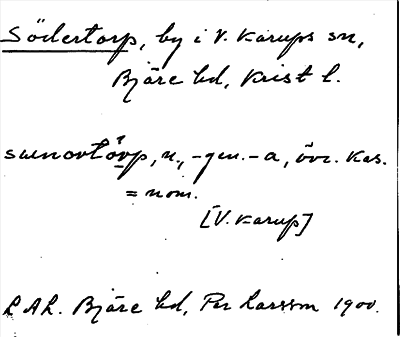 Södertorp, by i V. Karups sn,
Bjäre hd, Krist l.
n., -gen. -a, övr. kas.
= nom.
[V. Karup]
LAL. Bjäre hd, Per Larsson 1900.